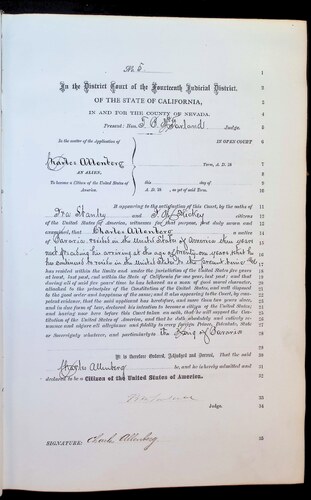 No 5.
In the District Court of the Fourteenth Judicial District,
OF THE STATE OF CALIFORNIA,
IN AND FOR THE COUNTY OF NEVADA.
Present: Hon. T. B. McFarland Judge.
In the matter of the Application of
Charles Altenberg
AN ALIEN,
To become a Citizen of the United States of America.
IN OPEN COURT
Term, A. D. 18
this day of
A. D. 18 , as yet of said Term.
It appearing to the satisfaction of this Court, by the oaths of
Ira Stanley and Hickey citizens
of the United States of America, witnesses for that purpose, first duly sworn and
examined, that Charles Altenberg a native
of Bavaria resided in the United States of America three years
next preceding his arriving at the age of twenty one years that he
has continued to reside in the United States to the present time & he
has resided within the limits and under the jurisdiction of the United States five years
at least, last past, and within the State of California for one year, last past; and that
during all of said five years' time he has behaved as a man of good moral character,
attached to the principles of the Constitution of the United States, and well disposed
to the good order and happiness of the same; and it also appearing to the Court, by com-
petent evidence, that the said applicant has heretofore, and more than two years since,
and in due form of law, declared his intention to become a citizen of the United States;
and having now here before this Court taken an oath, that he will support the Con-
stitution of the United States of America, and that he doth absolutely and entirely re-
nounce and abjure all allegiance and fidelity to every foreign Prince, Potentate, State
or Sovereignty whatever, and particularly to the King of Bavaria
It is therefore Ordered, Adjudged and Decreed, That the said
Charles Altenberg be, and he is hereby admitted and
declared to be a Citizen of the United States of America.
Judge.
SIGNATURE: Charles Altenberg
1
2
3
4
5
6
7
8
9
10
11
12
13
14
15
16
17
18
19
20
21
22
23
24
25
26
27
28
29
30
31
32
33
34
35